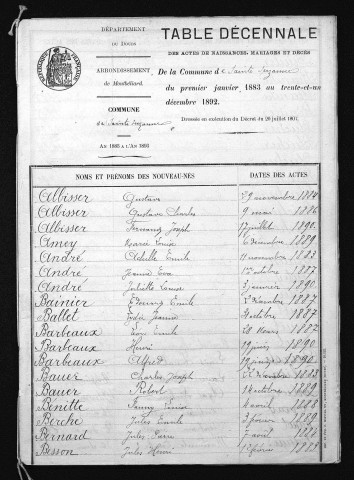 DÉPARTEMENT
du Doubs
ARRONDISSEMENT
de Montbéliard.
COMMUNE
de Sainte Suzanne
AN 1883 A L'AN 1892
TABLE DÉCENNALE
DES ACTES DE NAISSANCES, MARIAGES ET DÉCÈS
De la Commune de Sainte-Suzanne
du premier janvier 1883 au trente-et-un
décembre 1892.
Dressée en exécution du Décret du 20 juillet 1807
NOMS ET PRÉNOMS DES NOUVEAU-NÉS DATES DES ACTES
Albisser Gustave 29 novembre 1884
Albisser Gustave Charles 9 mai 1886
Albisser Fernand Joseph 17 juillet 1890
Amey Marie Louise 6 décembre 1889
André Achille Emile 11 novembre 1883
André Jeanne Eva octobre 1887
André Juliette Louise janvier 1890
Bainier Edouard Emile 1887
Ballet Jeanne octobre 1887
Barbeaux Léon Emile 28 Mars 1882
Barbeaux Henri 19 juin 1890
Barbeaux Alfred 1890
Bauer Charles Joseph 1883
Bauer Robert octobre 1889
Bénitte Fanny Louise avril 1888
Berche Jules Emile février 1889
Bernard Jules 7 avril
Besson Jules Henri février